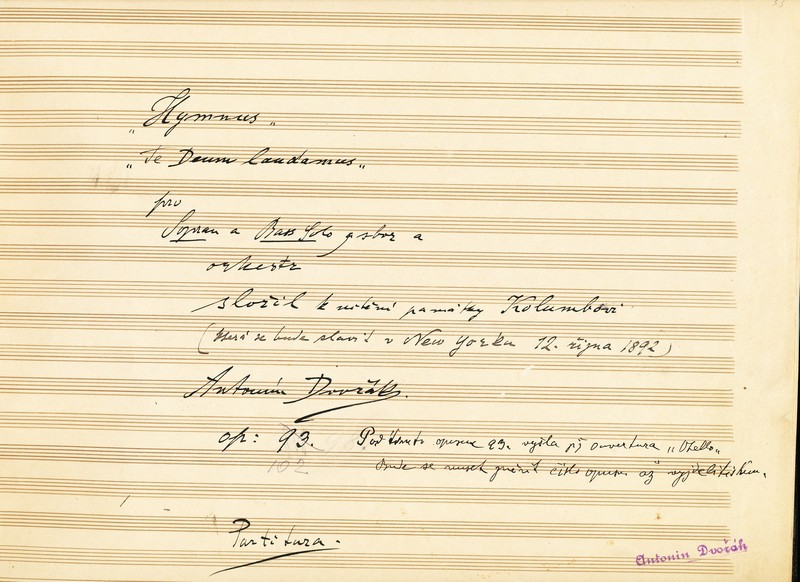 „Hymnus„
„Te Deum laudamus„
pro
Sopran a Bass Solo, sbor a
orkestr
složil k uctění památky Kolumbovi
(která se bude slavit v New Yorku 12. října 1892)
Antonín Dvořák.
op: 93. Pod tímto opusem 93. vyšla již ouvertura „Othello„
102 bude se muset změnit číslo opusu až vyjde tiskem.
Partitura.
Antonín Dvořák